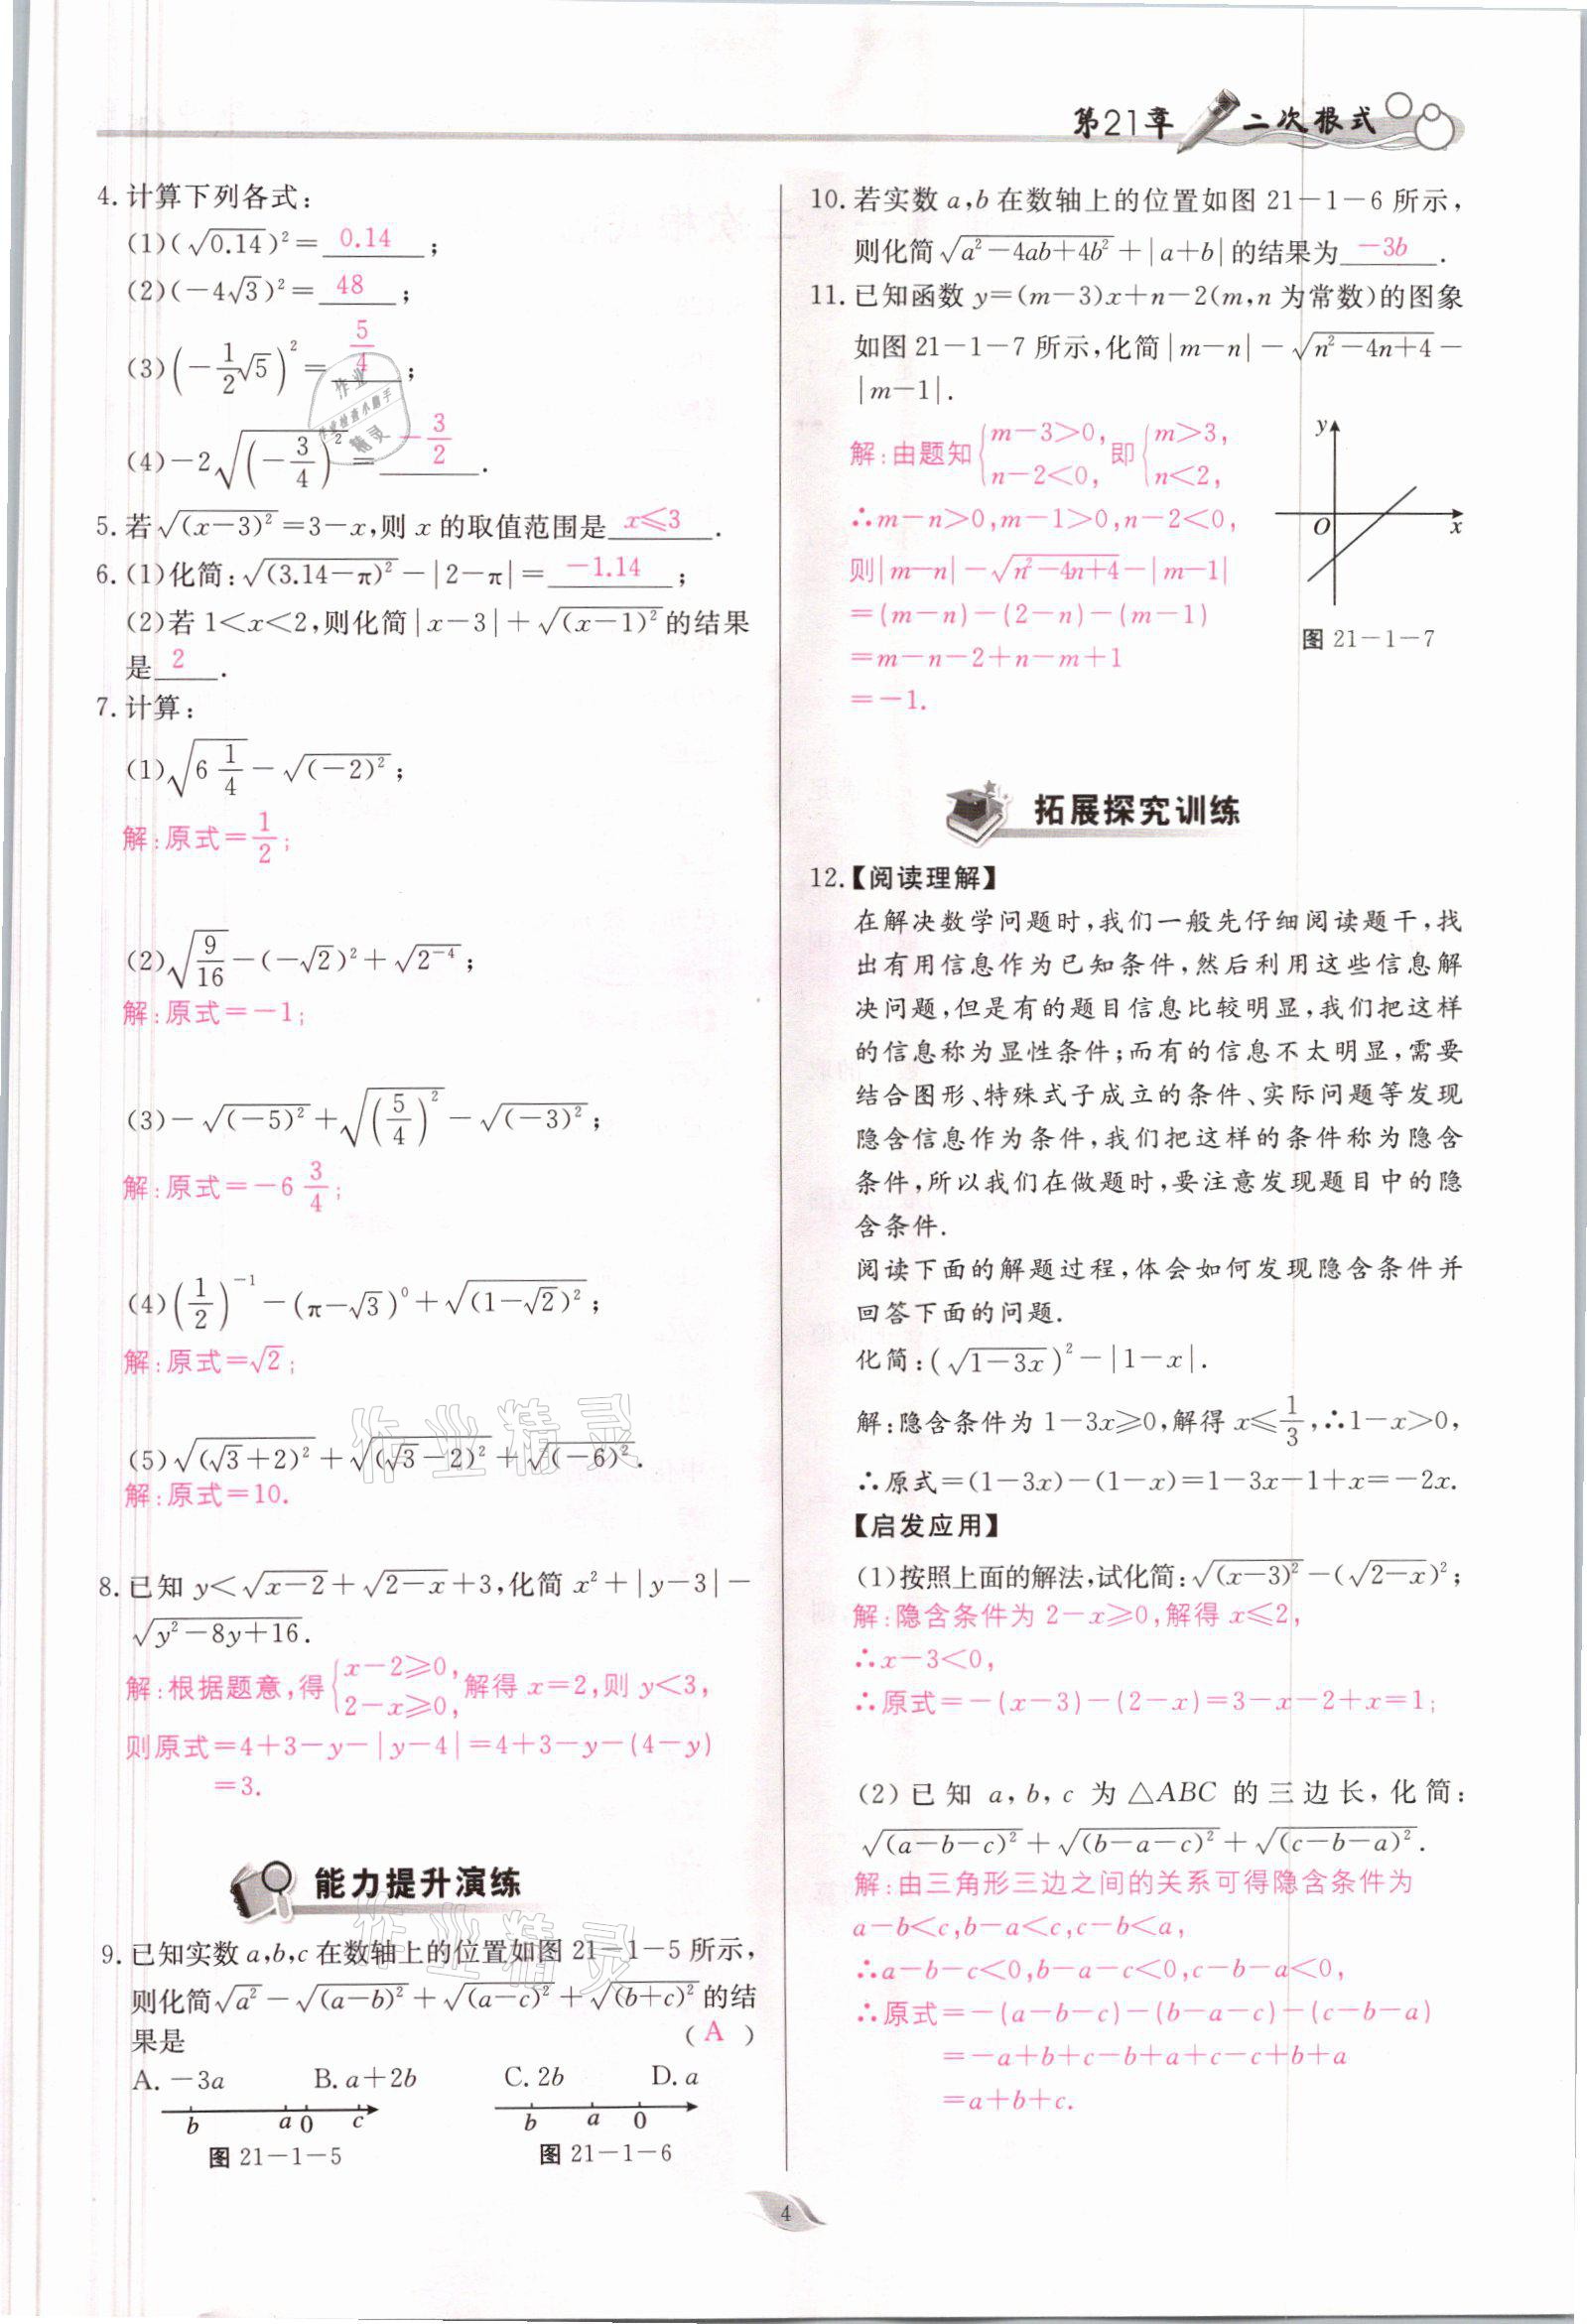 第21章 二次根式
4. 计算下列各式:
(1)(√0.14)²= 0.14 ;
(2)(-4√3)²= 48 ;
(3)(-1/2√5)²= 5/4 ;
(4)-2√(-3/4)²= -3/2 .
5. 若√(x-3)²=3-x,则 x 的取值范围是 x≤3 .
6. (1)化简:√(3.14-π)²-|2-π|= -1.14 ;
(2)若 1<x<2,则化简|x-3|+√(x-1)²的结果
是 2 .
7. 计算:
(1)√6 1/4-√(-2)²;
解:原式=1/2;
(2)√9/16-(-√2)²+√2⁻⁴;
解:原式=-1;
(3)-√(-5)²+√(5/4)²-√(-3)²;
解:原式=-6 3/4;
(4)(1/2)⁻¹-(π-√3)⁰+√(1-√2)²;
解:原式=√2;
(5)√(√3+2)²+√(√3-2)²+√(-6)².
解:原式=10.
8. 已知 y<√x-2+√2-x+3,化简 x²+|y-3|-
√y²-8y+16.
解:根据题意,得{x-2≥0, 2-x≥0, 解得 x=2,则 y<3,
则原式=4+3-y-|y-4|=4+3-y-(4-y)
=3.
能力提升演练
9. 已知实数 a,b,c 在数轴上的位置如图 21-1-5 所示,
则化简√a²-√(a-b)²+√(a-c)²+√(b+c)²的结
果是 ( A )
A. -3a B. a+2b C. 2b D. a
b a 0 c
b a 0
图 21-1-5 图 21-1-6
10. 若实数 a,b 在数轴上的位置如图 21-1-6 所示,
则化简√a²-4ab+4b²+|a+b|的结果为 -3b .
11. 已知函数 y=(m-3)x+n-2(m,n 为常数)的图象
如图 21-1-7 所示,化简|m-n|-√n²-4n+4-
|m-1|.
解:由题知{m-3>0, n-2<0, 即{m>3, n<2,
∴m-n>0,m-1>0,n-2<0,
则|m-n|-√n²-4n+4-|m-1|
=(m-n)-(2-n)-(m-1)
=m-n-2+n-m+1
=-1.
y
O x
图 21-1-7
拓展探究训练
12.【阅读理解】
在解决数学问题时,我们一般先仔细阅读题干,找
出有用信息作为已知条件,然后利用这些信息解
决问题,但是有的题目信息比较明显,我们把这样
的信息称为显性条件;而有的信息不太明显,需要
结合图形、特殊式子成立的条件、实际问题等发现
隐含信息作为条件,我们把这样的条件称为隐含
条件,所以我们在做题时,要注意发现题目中的隐
含条件.
阅读下面的解题过程,体会如何发现隐含条件并
回答下面的问题.
化简:(√1-3x)²-|1-x|.
解:隐含条件为 1-3x≥0,解得 x≤1/3,∴1-x>0,
∴原式=(1-3x)-(1-x)=1-3x-1+x=-2x.
【启发应用】
(1)按照上面的解法,试化简:√(x-3)²-(√2-x)²;
解:隐含条件为 2-x≥0,解得 x≤2,
∴x-3<0,
∴原式=-(x-3)-(2-x)=3-x-2+x=1;
(2)已知 a,b,c 为 △ABC 的三边长,化简:
√(a-b-c)²+√(b-a-c)²+√(c-b-a)².
解:由三角形三边之间的关系可得隐含条件为
a-b<c,b-a<c,c-b<a,
∴a-b-c<0,b-a-c<0,c-b-a<0,
∴原式=-(a-b-c)-(b-a-c)-(c-b-a)
=-a+b+c-b+a+c-c+b+a
=a+b+c.
4
作业
作业检查小助手
精灵
作业精灵
作业精灵